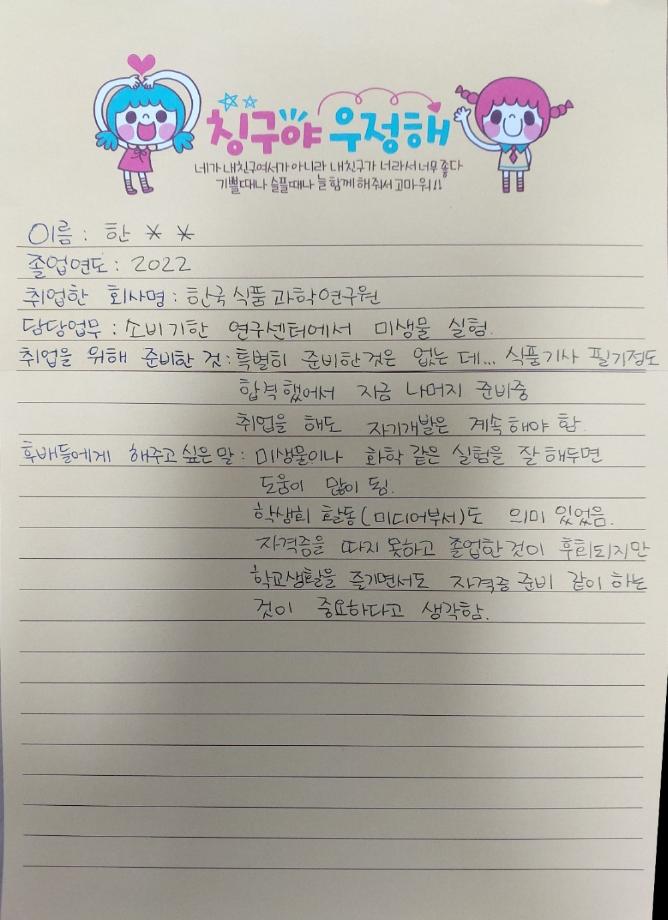 칭구야 우정해
네가 내친구여서가 아니라 내친구가 너라서 너무 좋다
기쁠때나 슬플때나 늘 함께 해줘서 고마워!!
이름 : 한 * *
졸업연도 : 2022
취업한 회사명 : 한국식품과학연구원
담당업무 : 소비기한 연구센터에서 미생물 실험.
취업을 위해 준비한 것 : 특별히 준비한것은 없는 데... 식품기사 필기정도
합격했어서 지금 나머지 준비중
취업을 해도 자기개발은 계속해야 함.
후배들에게 해주고 싶은 말 : 미생물이나 화학 같은 실험을 잘 해두면
도움이 많이 됨.
학생회 활동(미디어부서)도 의미 있었음.
자격증을 따지 못하고 졸업한것이 후회되지만
학교생활을 즐기면서도 자격증 준비 같이 하는
것이 중요하다고 생각함.